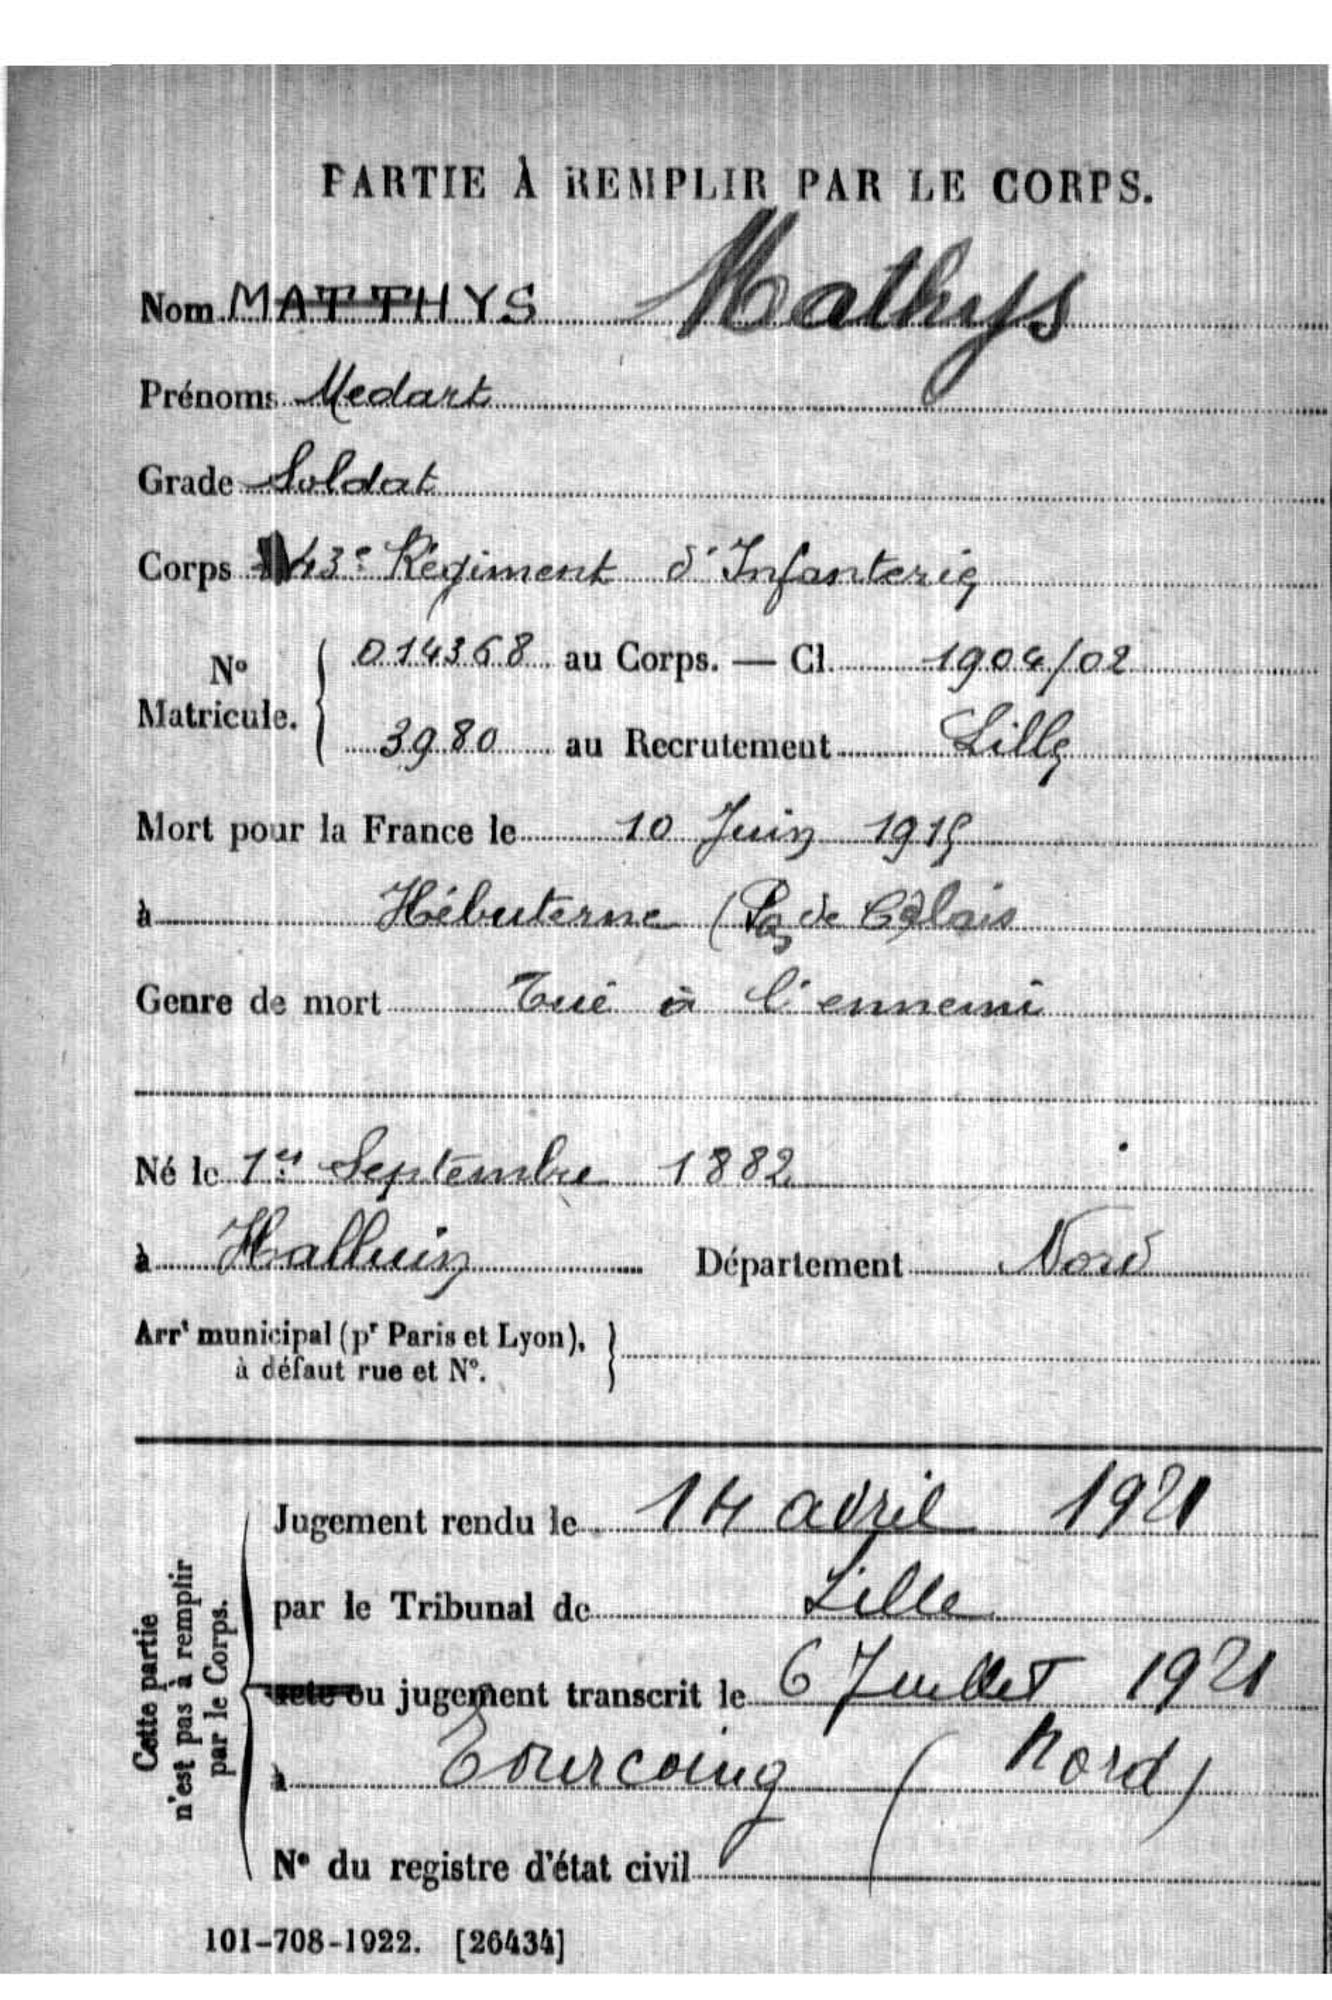 PARTIE À REMPLIR PAR LE CORPS.
Nom MATTHYS Mathys
Prénoms Medart
Grade Soldat
Corps 43e Régiment d'Infanterie
No Matricule. 014368 au Corps. — Cl. 1904/02
3980 au Recrutement Lille
Mort pour la France le 10 Juin 1915
à Hébuterne (Pas de Calais
Genre de mort Tué à l'ennemi
Né le 1er Septembre 1882
à Halluin Département Nord
Arrt municipal (pr Paris et Lyon),
à défaut rue et No.
Cette partie
n'est pas à remplir
par le Corps.
Jugement rendu le 14 avril 1921
par le Tribunal de Lille
acte ou jugement transcrit le 6 Juillet 1921
à Tourcoing (Nord)
No du registre d'état civil
101-708-1922. [26434]